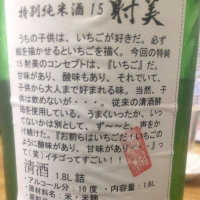 特別純米酒15 射美
うちの子供は、いちごが好きだ。必ず
絵を描かせるといちごを描く。今回の特純
15射美のコンセプトは、『いちご』だ。
甘味があり、酸味もあり、それでいて、
子供から大人まで好まれる味。当然、子
供は飲めないが・・・。従来の清酒酵
母を使用している。うまくいったか、いっ
てないかは別として、ず〜〜と、声をか
け続けた。『お前らはいちごだ！いちごの
ように酸味があり、甘味があり・・・』
って(笑)イチゴってすごい！！
清酒 1.8L 詰
・アルコール分：16度 ・内容量：1.8L
・原材料名：米・米麹